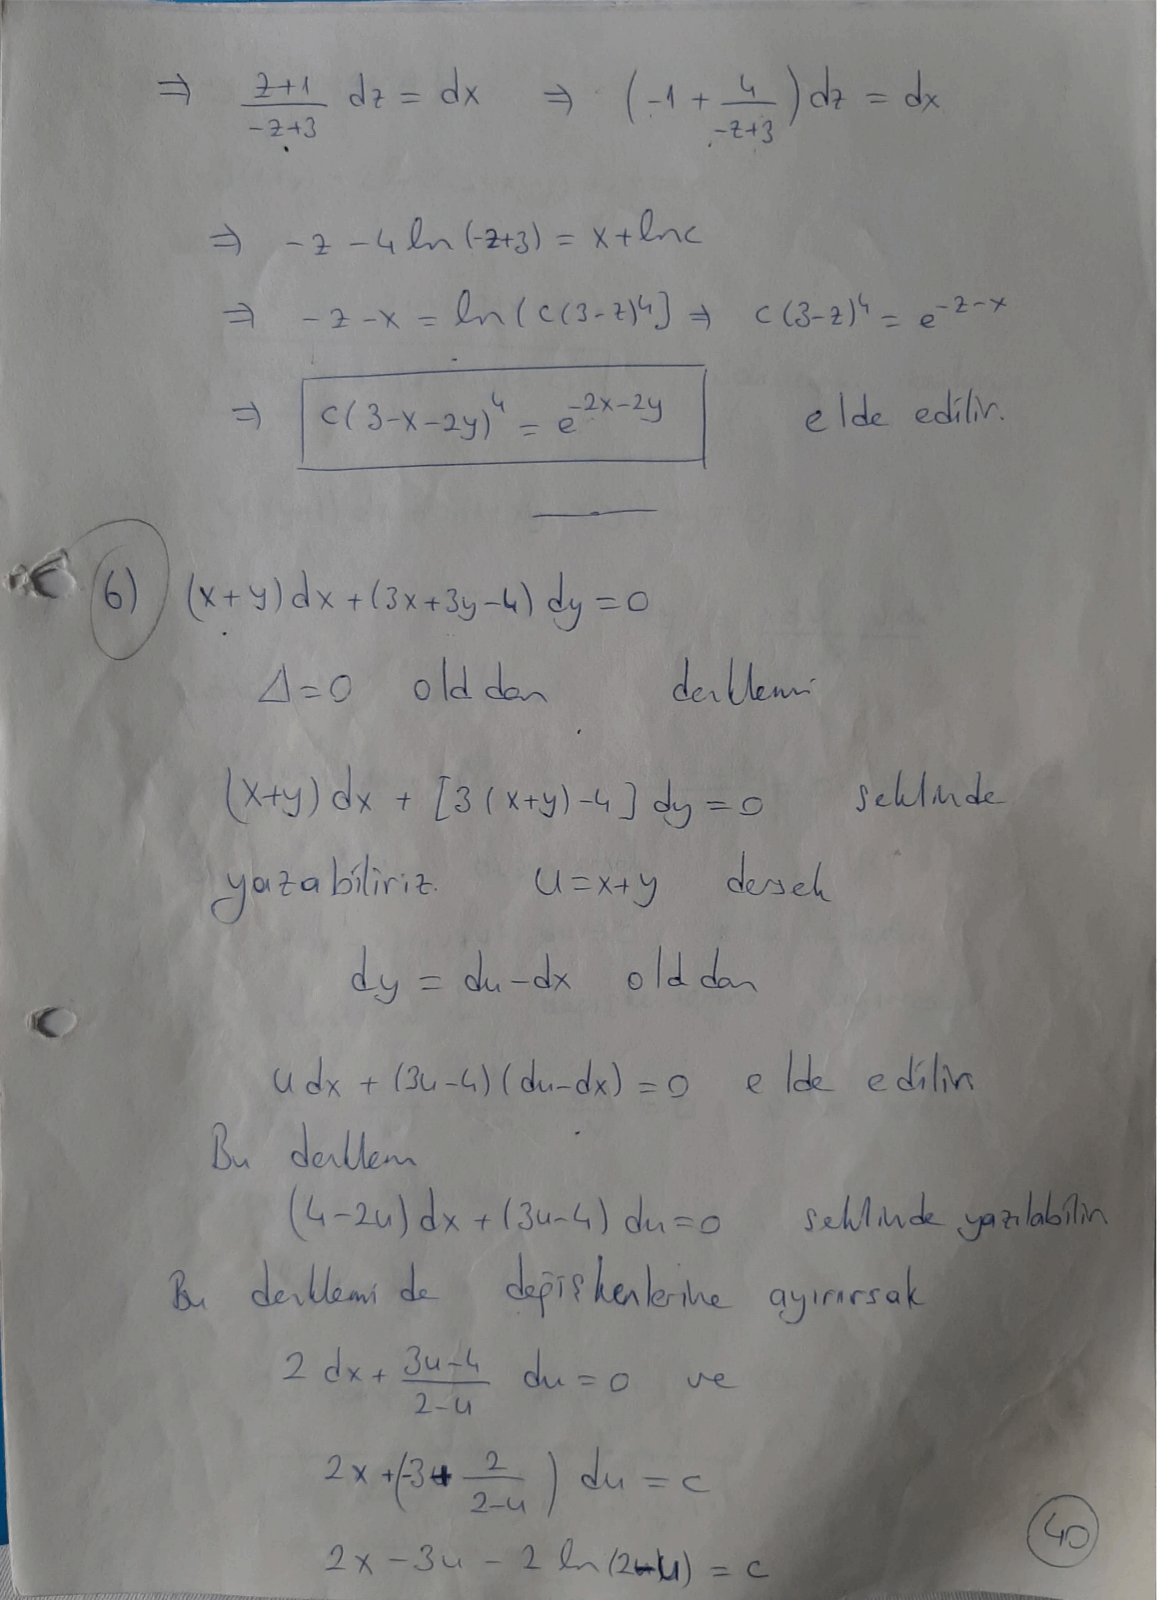 ⇒ (z+1)/(-z+3) dz = dx ⇒ (-1 + 4/(-z+3)) dz = dx
⇒ -z - 4 ln(-z+3) = x + lnc
⇒ -z - x = ln(c(3-z)⁴] ⇒ c(3-z)⁴ = e^(-z-x)
⇒ c(3-x-2y)⁴ = e^(-2x-2y) elde edilir.
6) (x+y)dx + (3x+3y-4) dy = 0
Δ=0 olddan denklemi
(x+y) dx + [3(x+y)-4] dy = 0 seklinde
yazabiliriz. u=x+y dersek
dy = du-dx olddan
u dx + (3u-4)(du-dx) = 0 elde edilir
Bu denklem
(4-2u) dx + (3u-4) du = 0 seklinde yazılabilir
Bu denklemi de değişkenlerine ayırırsak
2 dx + (3u-4)/(2-u) du = 0 ve
2x + (-3 + 2/(2-u)) du = c
2x - 3u - 2 ln(2-u) = c
40